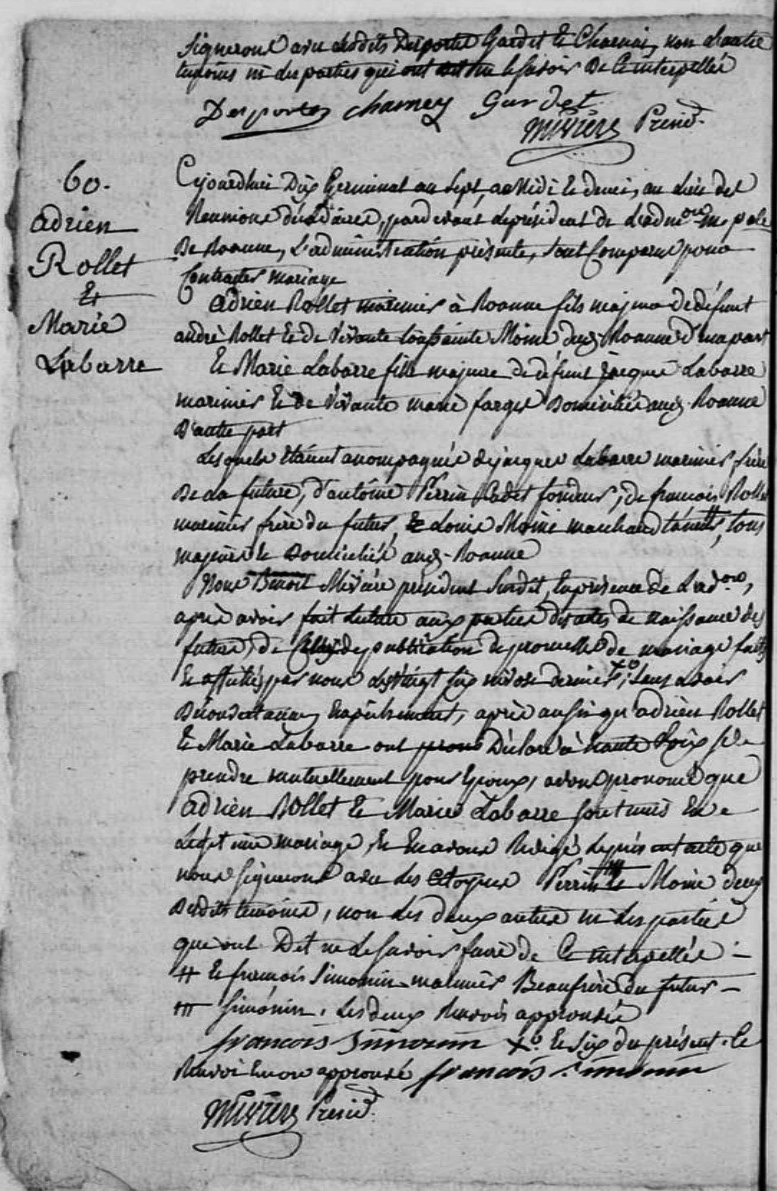 signeront avec lesdits Desportes Gardet et Charnai, non l'autre
temoins ni les parties qui ont dit ne le savoir de ce interpellés
Desportes charney Gardet
Mivière Présid.
60.
adrien
Rollet
Et
Marie
Labarre
Cejourdhui Dix Germinal an Sept, a Midi et demi, au Lieu des
Reunions décadaires, pardevant le président de L'adm.on M.pale
De Roanne, L'administration présente, sont Comparus pour
Contracter mariage
adrien Rollet marinier à Roanne fils majeur de défunt
andré Rollet et de vivante toussainte Moine dud. Roanne d'une part
Et Marie Labarre fille majeure de défunt jacque Labarre
marinier et de vivante marie farges Domiciliée aud. Roanne
D'autre part
Lesquels étaient accompagnés de jacques Labarre marinier, frère
De la future, d'antoine Perrin Cadet fondeur, de francois Rollet
marinier, frère du futur, et Louis Moine marchand, tous
majeurs et Domiciliés aud. Roanne
Nous Benoit Mivière président susdit, en présence de L'ad.on,
après avoir fait lecture aux parties des actes de naissance des
futurs, de celui de publication de promesse de mariage faite
et affichée par nous le vingt six nivose dernier, sans avoir
Découvert aucun Empêchement, après aussi qu'adrien Rollet
Et Marie Labarre ont Déclaré à haute Voix se
prendre mutuellement pour Epoux, avons prononcé que
adrien Rollet Et Marie Labarre sont unis En
Légitime mariage, et En avons Rédigé le présent acte que
nous signerons avec les citoyens Perrin et Moine deux
Desdits temoins, non les deux autres ni les parties
qui ont Dit ne le savoir faire de Ce interpellés
# Et francois Simonin marinier Beaufrère du futur
Simonin, Les deux Renvois approuvés
francois Simonin Xo Et six du présent, le
Renvoi Encore approuvé francois Simonin
Mivière Présid.